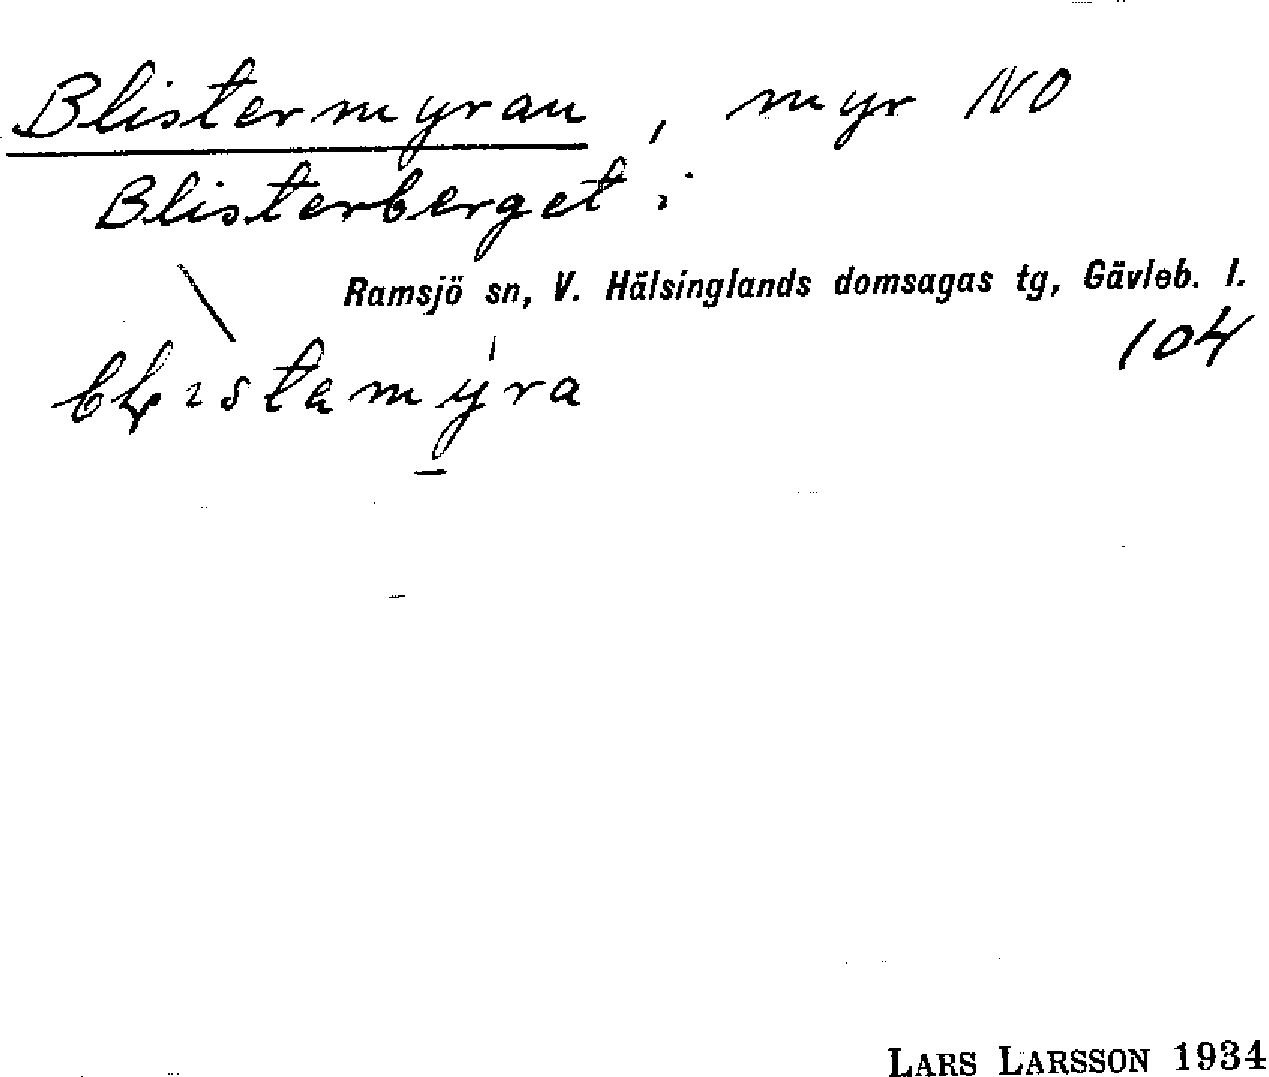 Blistermyran, myr NO
Blisterberget i
Ramsjö sn, V. Hälsinglands domsagas tg, Gävleb. l.
104
LARS LARSSON 1934